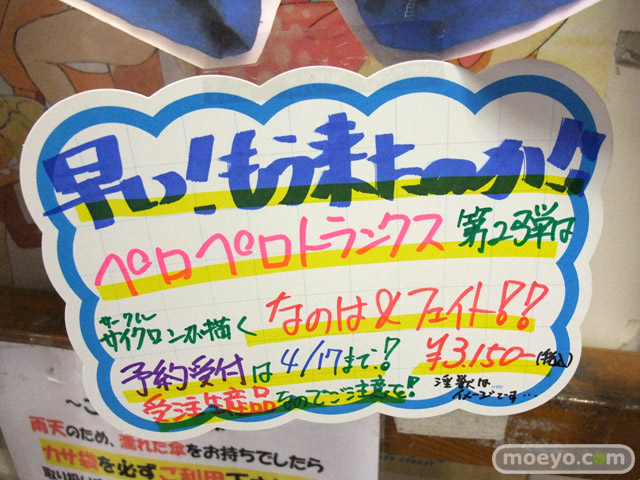 早い!もう来たーっか!!
ペロペロトランクス 第2弾は
サークル
サイクロンが描く なのは&フェイト!?
予約受付は4/17まで! ¥3,150-(税込)
受注生産品なのでご注意を! 淫獣は……
イメージです…
〜ご
雨天のため、濡れた傘をお持ちでしたら
カサ袋を必ずご利用下さ
moeyo.com